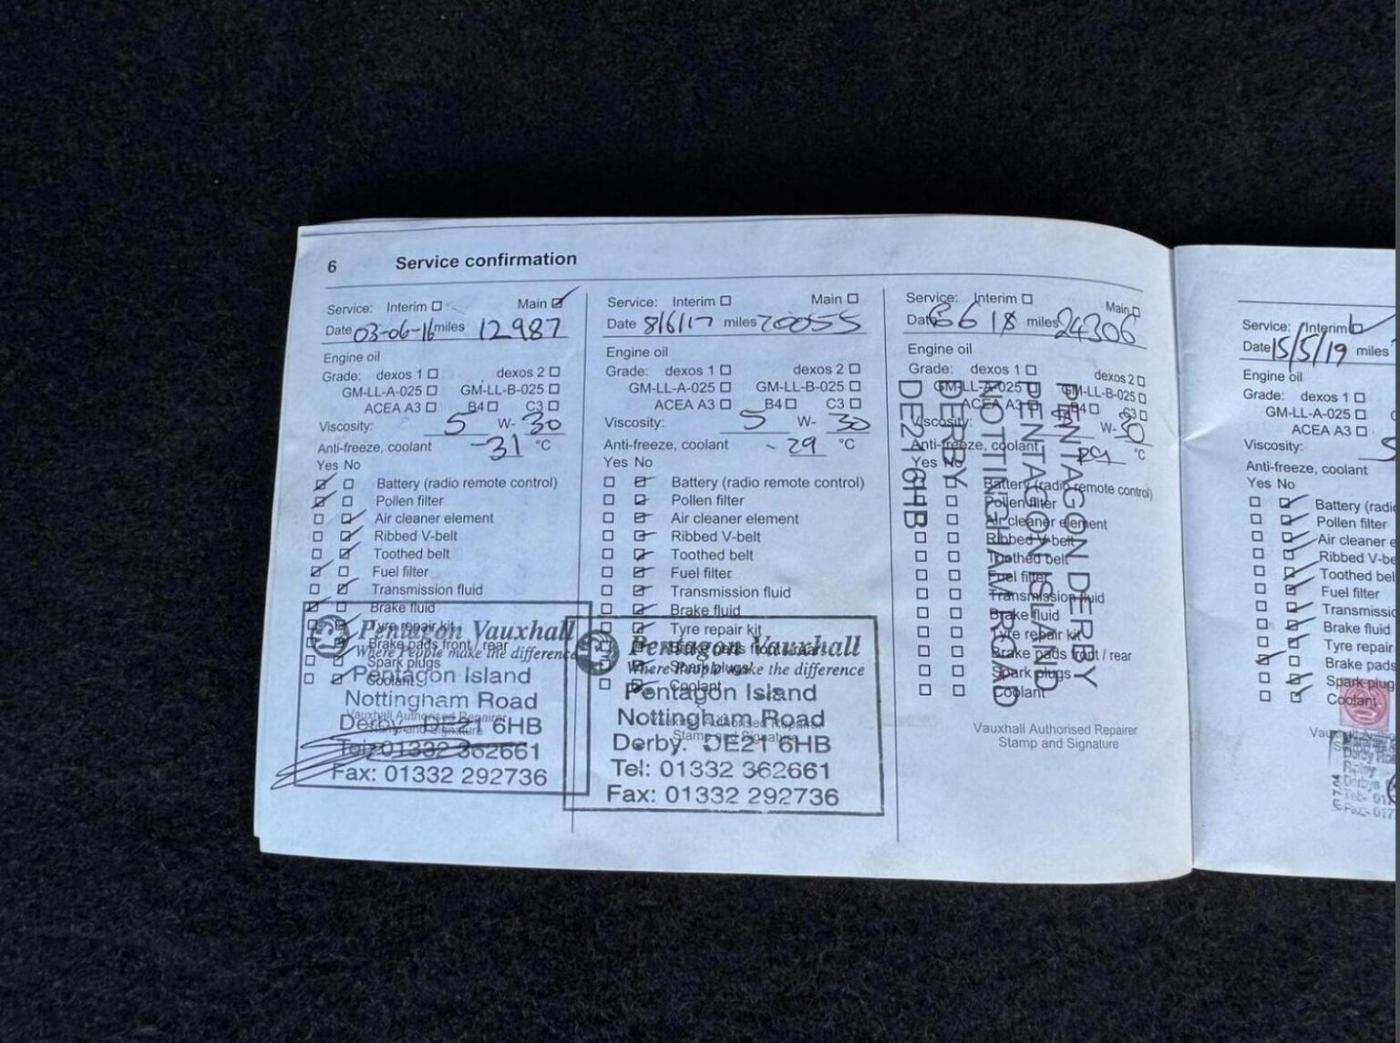 6 Service confirmation
Service: Interim Main
Date 03-06-16 miles 12987
Engine oil
Grade: dexos 1 dexos 2
GM-LL-A-025 GM-LL-B-025
ACEA A3 B4 C3
Viscosity: 5 W- 30
Anti-freeze, coolant -31 °C
Yes No
Battery (radio remote control)
Pollen filter
Air cleaner element
Ribbed V-belt
Toothed belt
Fuel filter
Transmission fluid
Brake fluid
Tyre repair kit
Brake pads front / rear
Spark plugs
Coolant
Vauxhall Authorised Repairer
Stamp and Signature
Pentagon Vauxhall
Where People make the difference
Pentagon Island
Nottingham Road
Derby. DE21 6HB
Tel: 01332 362661
Fax: 01332 292736
Service: Interim Main
Date 8/6/17 miles 20055
Engine oil
Grade: dexos 1 dexos 2
GM-LL-A-025 GM-LL-B-025
ACEA A3 B4 C3
Viscosity: 5 W- 30
Anti-freeze, coolant -29 °C
Yes No
Battery (radio remote control)
Pollen filter
Air cleaner element
Ribbed V-belt
Toothed belt
Fuel filter
Transmission fluid
Brake fluid
Tyre repair kit
Brake pads front / rear
Spark plugs
Coolant
Vauxhall Authorised Repairer
Stamp and Signature
Pentagon Vauxhall
Where People make the difference
Pentagon Island
Nottingham Road
Derby. DE21 6HB
Tel: 01332 362661
Fax: 01332 292736
Service: Interim Main
Date 6 18 miles 24306
Engine oil
Grade: dexos 1 dexos 2
GM-LL-A-025 GM-LL-B-025
ACEA A3 B4 C3
Viscosity: W- 30
Anti-freeze, coolant °C
Yes No
Battery (radio remote control)
Pollen filter
Air cleaner element
Ribbed V-belt
Toothed belt
Fuel filter
Transmission fluid
Brake fluid
Tyre repair kit
Brake pads front / rear
Spark plugs
Coolant
Vauxhall Authorised Repairer
Stamp and Signature
PENTAGON DERBY
PENTAGON ISLAND
NOTTINGHAM ROAD
DERBY
DE21 6HB
Service: Interim
Date 15/5/19 miles
Engine oil
Grade: dexos 1
GM-LL-A-025
ACEA A3
Viscosity: 5
Anti-freeze, coolant
Yes No
Battery (radi
Pollen filter
Air cleaner e
Ribbed V-be
Toothed bel
Fuel filter
Transmissio
Brake fluid
Tyre repair
Brake pads
Spark plug
Coolant